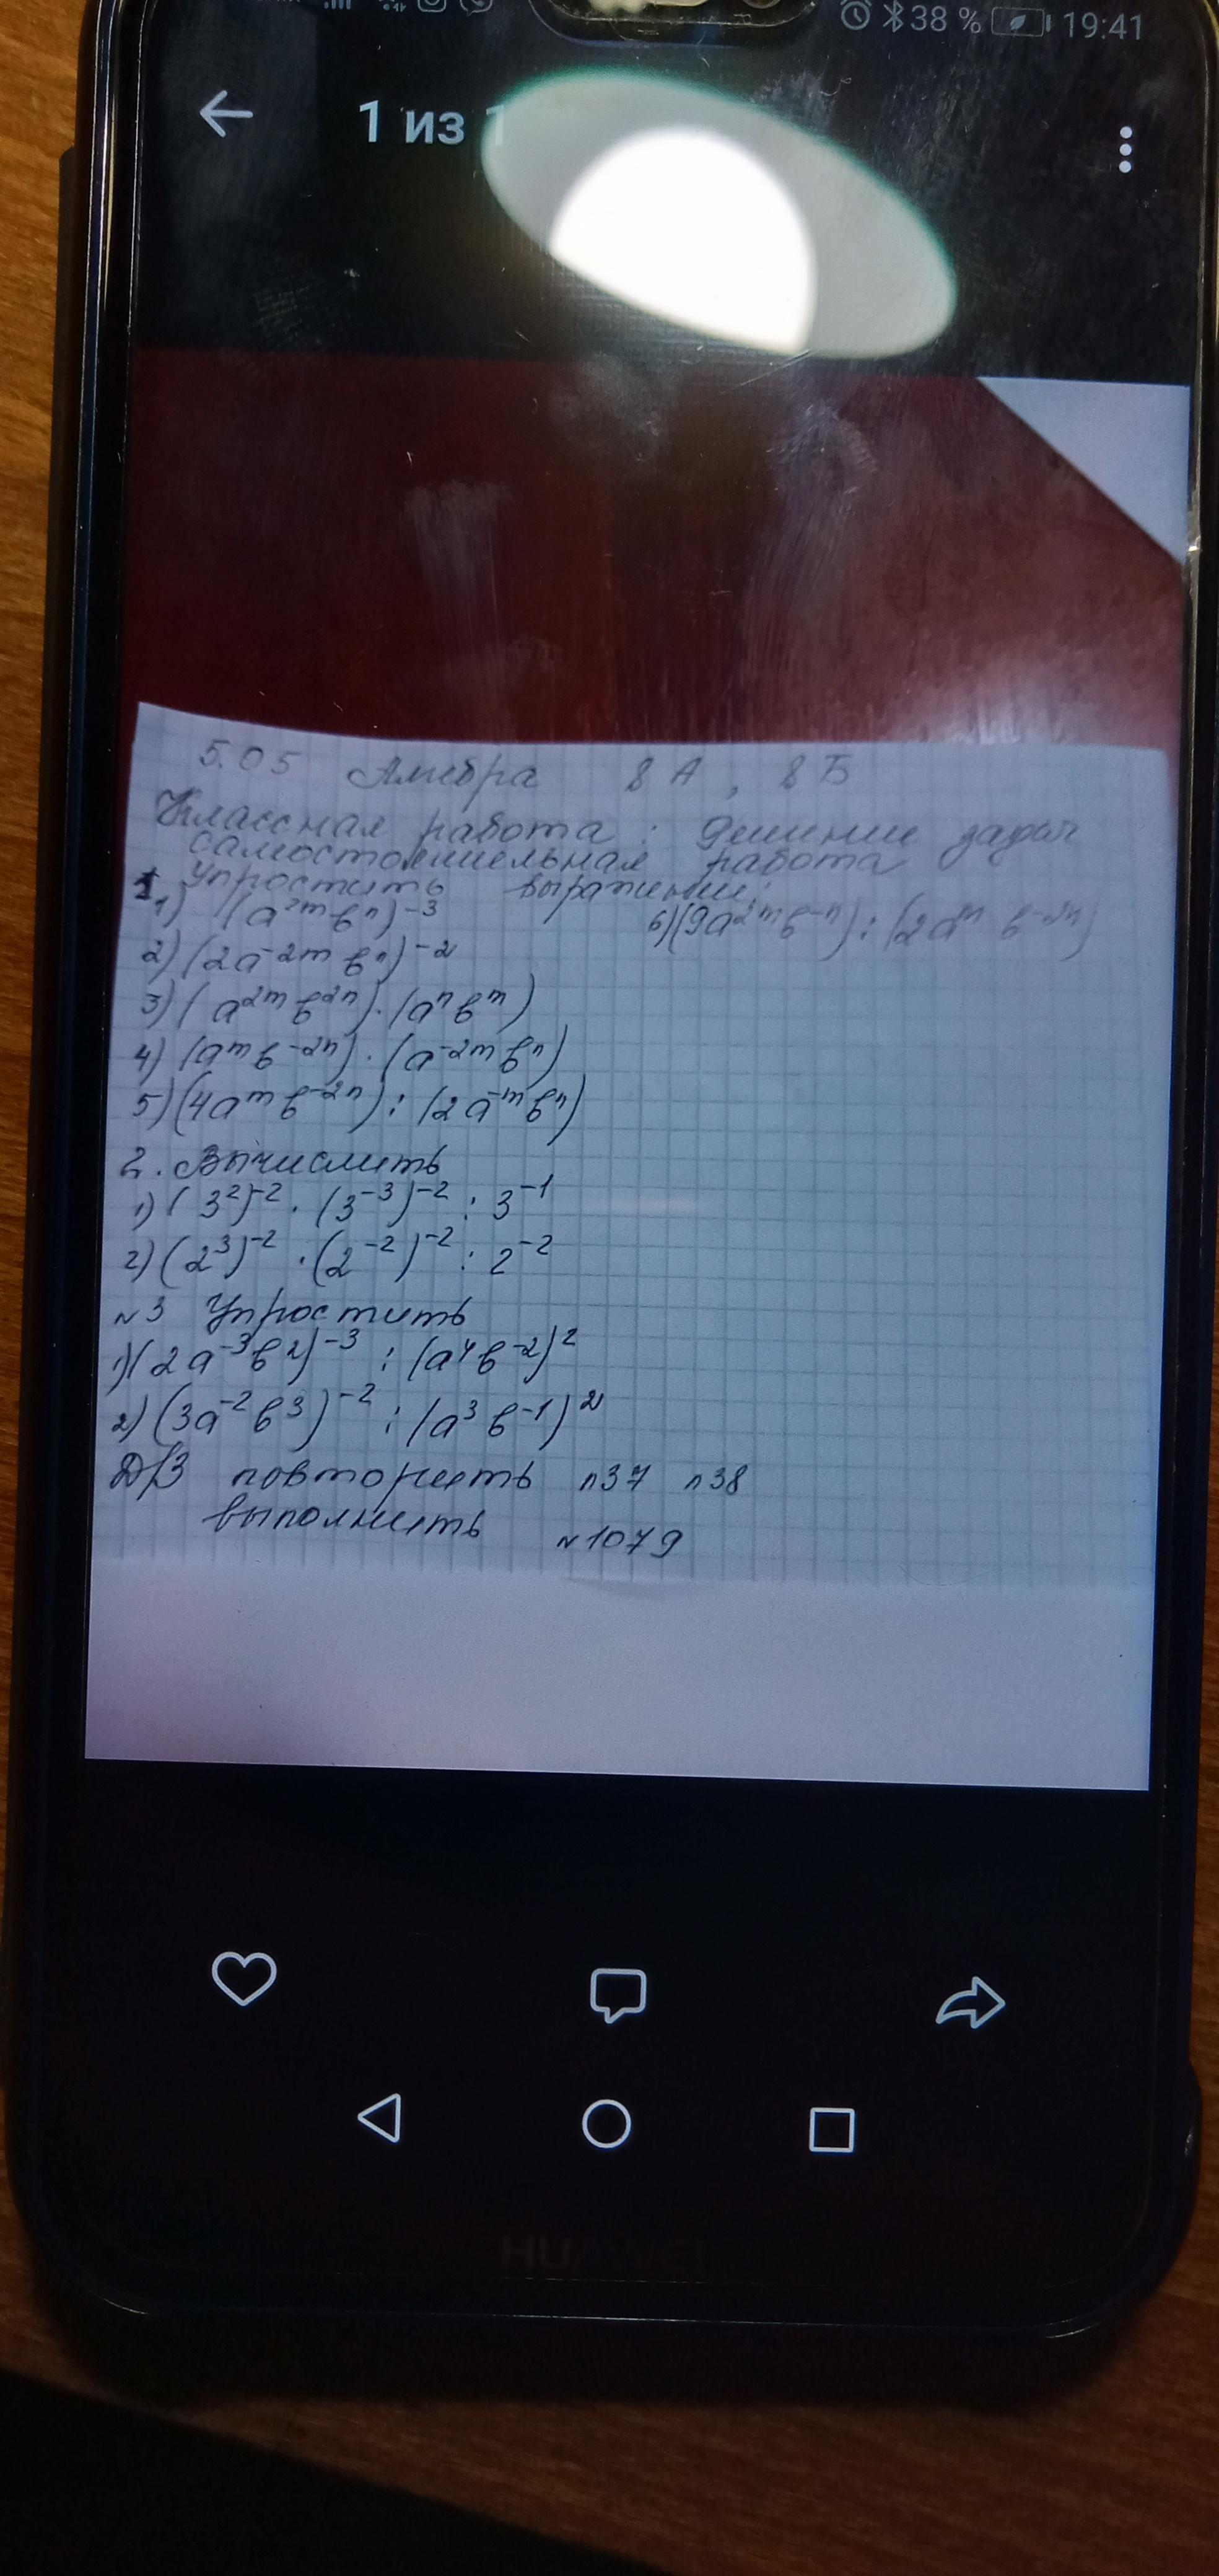 38 % 19:41
1 из 1
5.05 Алгебра 8 А , 8 Б
Классная работа : Решение задач
Самостоятельная работа
1 Упростить выражение:
1) (a²ᵐ bⁿ)⁻³ 6) (9a²ᵐ b⁻ⁿ) : (2aᵐ b⁻²ⁿ)
2) (2a⁻²ᵐ bⁿ)⁻²
3) (a²ᵐ b²ⁿ) · (aⁿ bᵐ)
4) (aᵐ b⁻²ⁿ) · (a⁻²ᵐ bⁿ)
5) (4aᵐ b⁻²ⁿ) : (2a⁻ᵐ bⁿ)
2. Вычислить
1) (3²)⁻² · (3⁻³)⁻² : 3⁻¹
2) (2³)⁻² · (2⁻²)⁻² : 2⁻²
№3 Упростить
1) (2a⁻³ b²)⁻³ : (a⁴ b⁻²)²
2) (3a⁻² b³)⁻² : (a³ b⁻¹)²
Д/З повторить п37 п38
выполнить №1079
HUAWEI